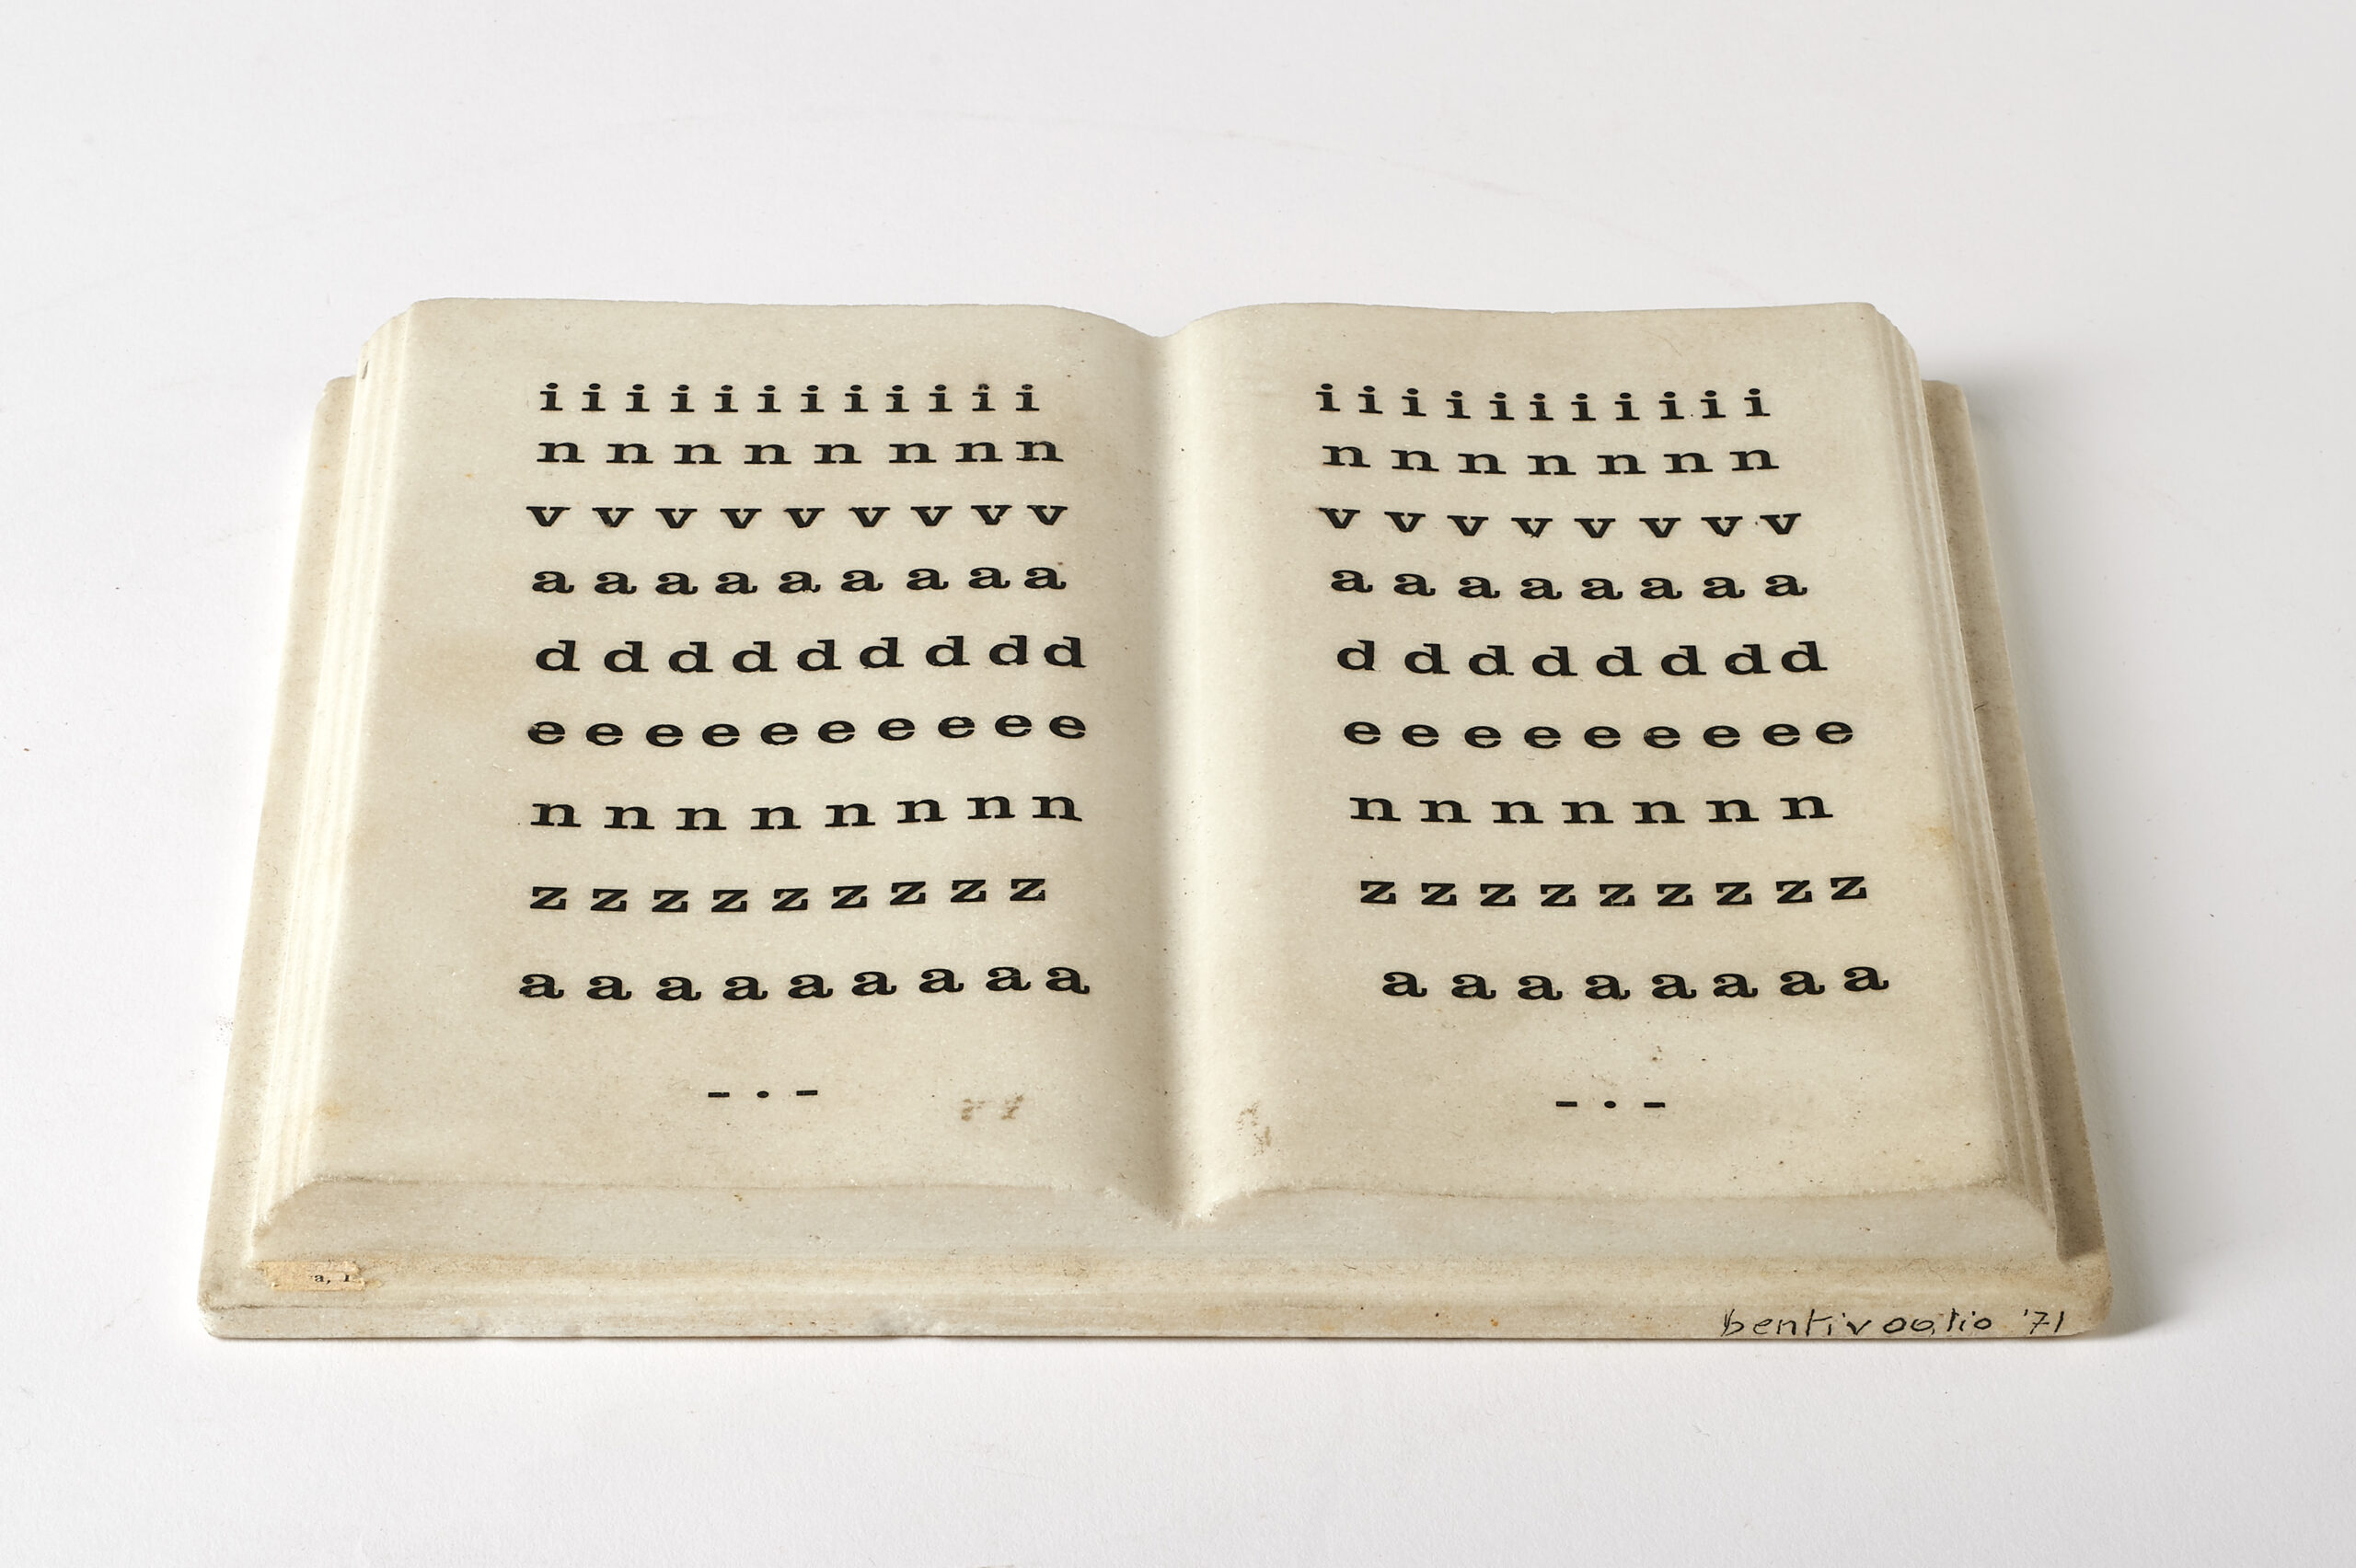 i i i i i i i i i i i i
n n n n n n n n
v v v v v v v v v
a a a a a a a a a
d d d d d d d d d
e e e e e e e e e e
n n n n n n n n
z z z z z z z z z
a a a a a a a a a
- . -
i i i i i i i i i i i
n n n n n n n
v v v v v v v v
a a a a a a a a
d d d d d d d d
e e e e e e e e e
n n n n n n n
z z z z z z z z z
a a a a a a a a
- . -
bentivoglio '71